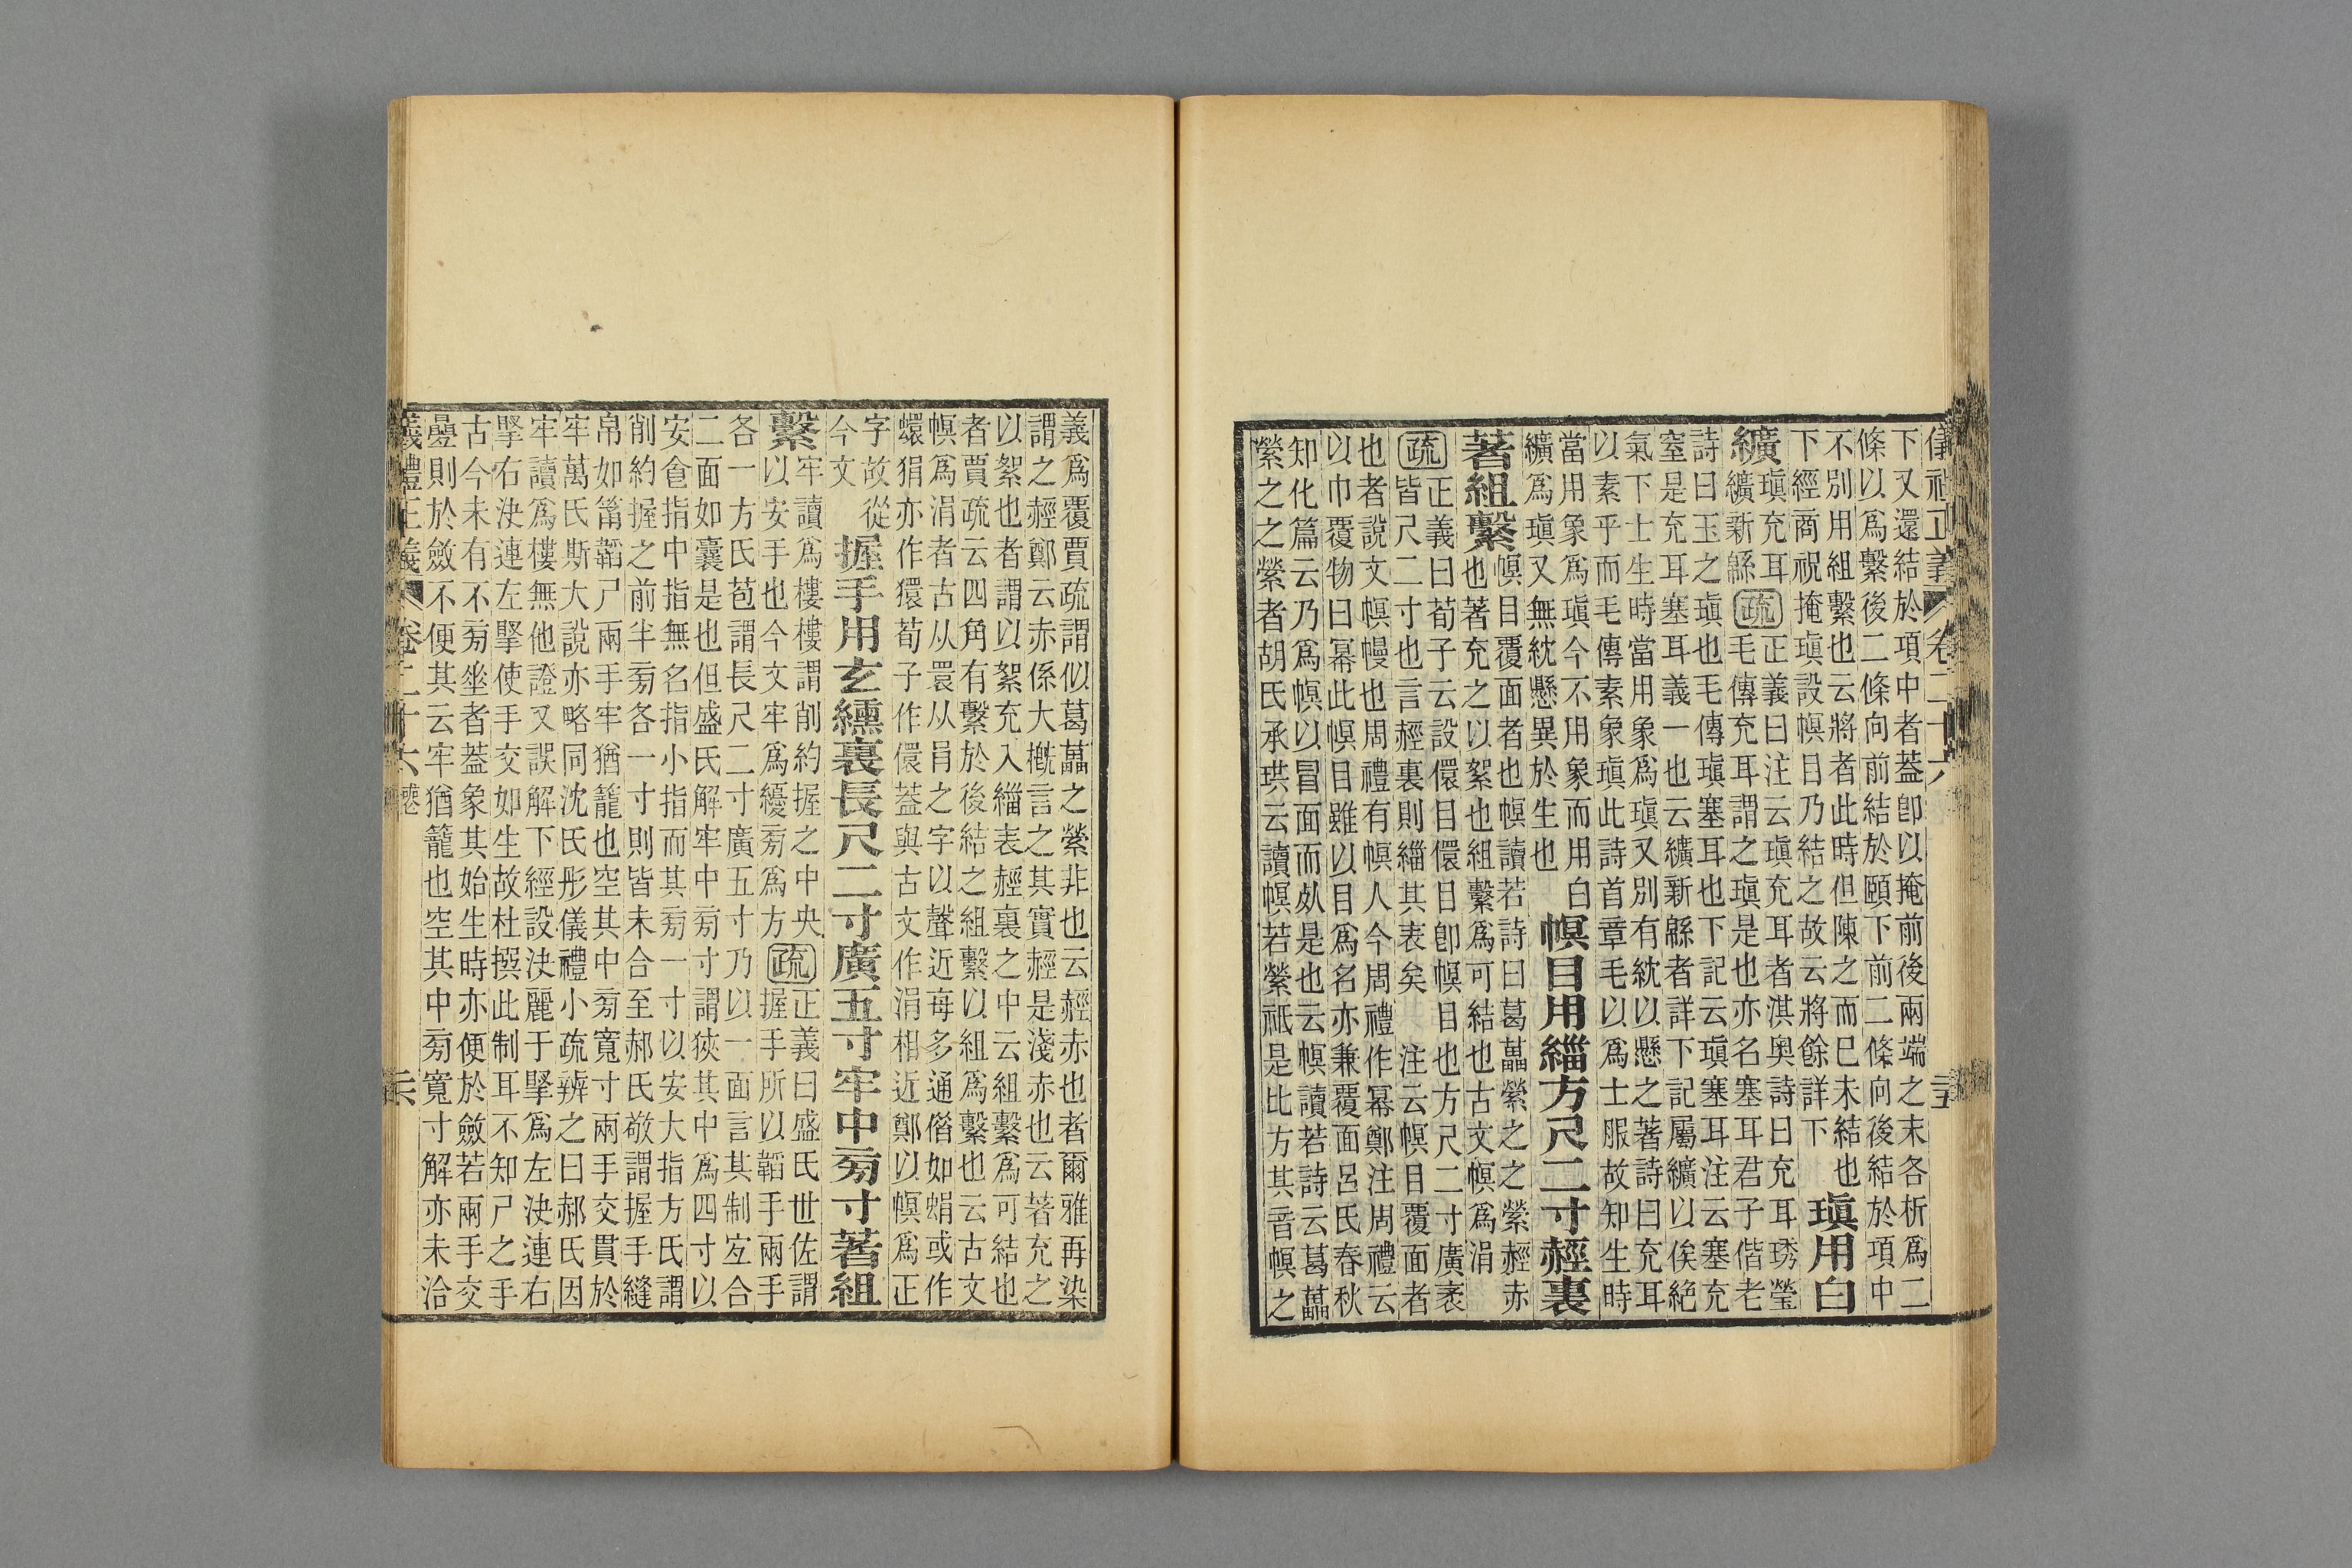 儀禮正義 卷二十六 三五
下又還結於項中者葢卽以掩前後兩端之末各析爲二
條以爲繫後二條向前結於頤下前二條向後結於項中
不別用組繫也云將者此時但陳之而巳未結也
下經商祝掩瑱設幎目乃結之故云將餘詳下
瑱用白
纊
瑱充耳
纊新緜
疏
正義曰注云瑱充耳者淇奧詩曰充耳琇瑩
毛傳充耳謂之瑱是也亦名塞耳君子偕老
詩曰玉之瑱也毛傳瑱塞耳也下記云瑱塞耳注云塞充
窒是充耳塞耳義一也云纊新緜者詳下記屬纊以俟絕
氣下士生時當用象爲瑱又別有紞以懸之著詩曰充耳
以素乎而毛傳素象瑱此詩首章毛以爲士服故知生時
當用象爲瑱今不用象而用白
纊爲瑱又無紞懸異於生也
幎目用緇方尺二寸䞓裏
著組繫
幎目覆面者也幎讀若詩曰葛藟縈之之縈䞓赤
也著充之以絮也組繫爲可結也古文幎爲涓
疏
正義曰荀子云設儇目儇目卽幎目也方尺二寸廣袤
皆尺二寸也言䞓裏則緇其表矣 注云幎目覆面者
也者說文幎幔也周禮有幎人今周禮作幂鄭注周禮云
以巾覆物曰幂此幎目雖以目爲名亦兼覆面呂氏春秋
知化篇云乃爲幎以冒面而死是也云幎讀若詩云葛藟
縈之之縈者胡氏承珙云讀幎若縈祇是比方其音幎之
義爲覆賈疏謂似葛藟之縈非也云䞓赤也者爾雅再染
謂之䞓鄭云赤係大槪言之其實䞓是淺赤也云著充之
以絮也者謂以絮充入緇表䞓裏之中云組繫爲可結也
者賈疏云四角有繫於後結之組繫以組爲繫也云古文
幎爲涓者古从瞏从肙之字以聲近每多通借如蜎或作
蠉狷亦作獧荀子作儇葢與古文作涓相近鄭以幎爲正
字故從
今文
握手用玄纁裏長尺二寸廣五寸牢中旁寸著組
繫
牢讀爲樓樓謂削約握之中央
以安手也今文牢爲纋旁爲方
疏
正義曰盛氏世佐謂
握手所以韜手兩手
各一方氏苞謂長尺二寸廣五寸乃以一面言其制㝎合
二面如囊是也但盛氏解牢中旁寸謂狹其中爲四寸以
安食指中指無名指小指而其旁一寸以安大指方氏謂
削約握之前半旁各一寸則皆未合至郝氏敬謂握手縫
帛如筩韜尸兩手牢猶籠也空其中旁寬寸兩手交貫於
牢萬氏斯大說亦略同沈氏彤儀禮小疏辨之曰郝氏因
牢讀爲樓無他證又誤解下經設決麗于掔爲左決連右
掔右決連左掔使手交如生故杜撰此制耳不知尸之手
古今未有不旁坐者葢象其始生時亦便於斂若兩手交
疊則於斂不便其云牢猶籠也空其中旁寬寸解亦未洽
儀禮正義 卷二十六 三六